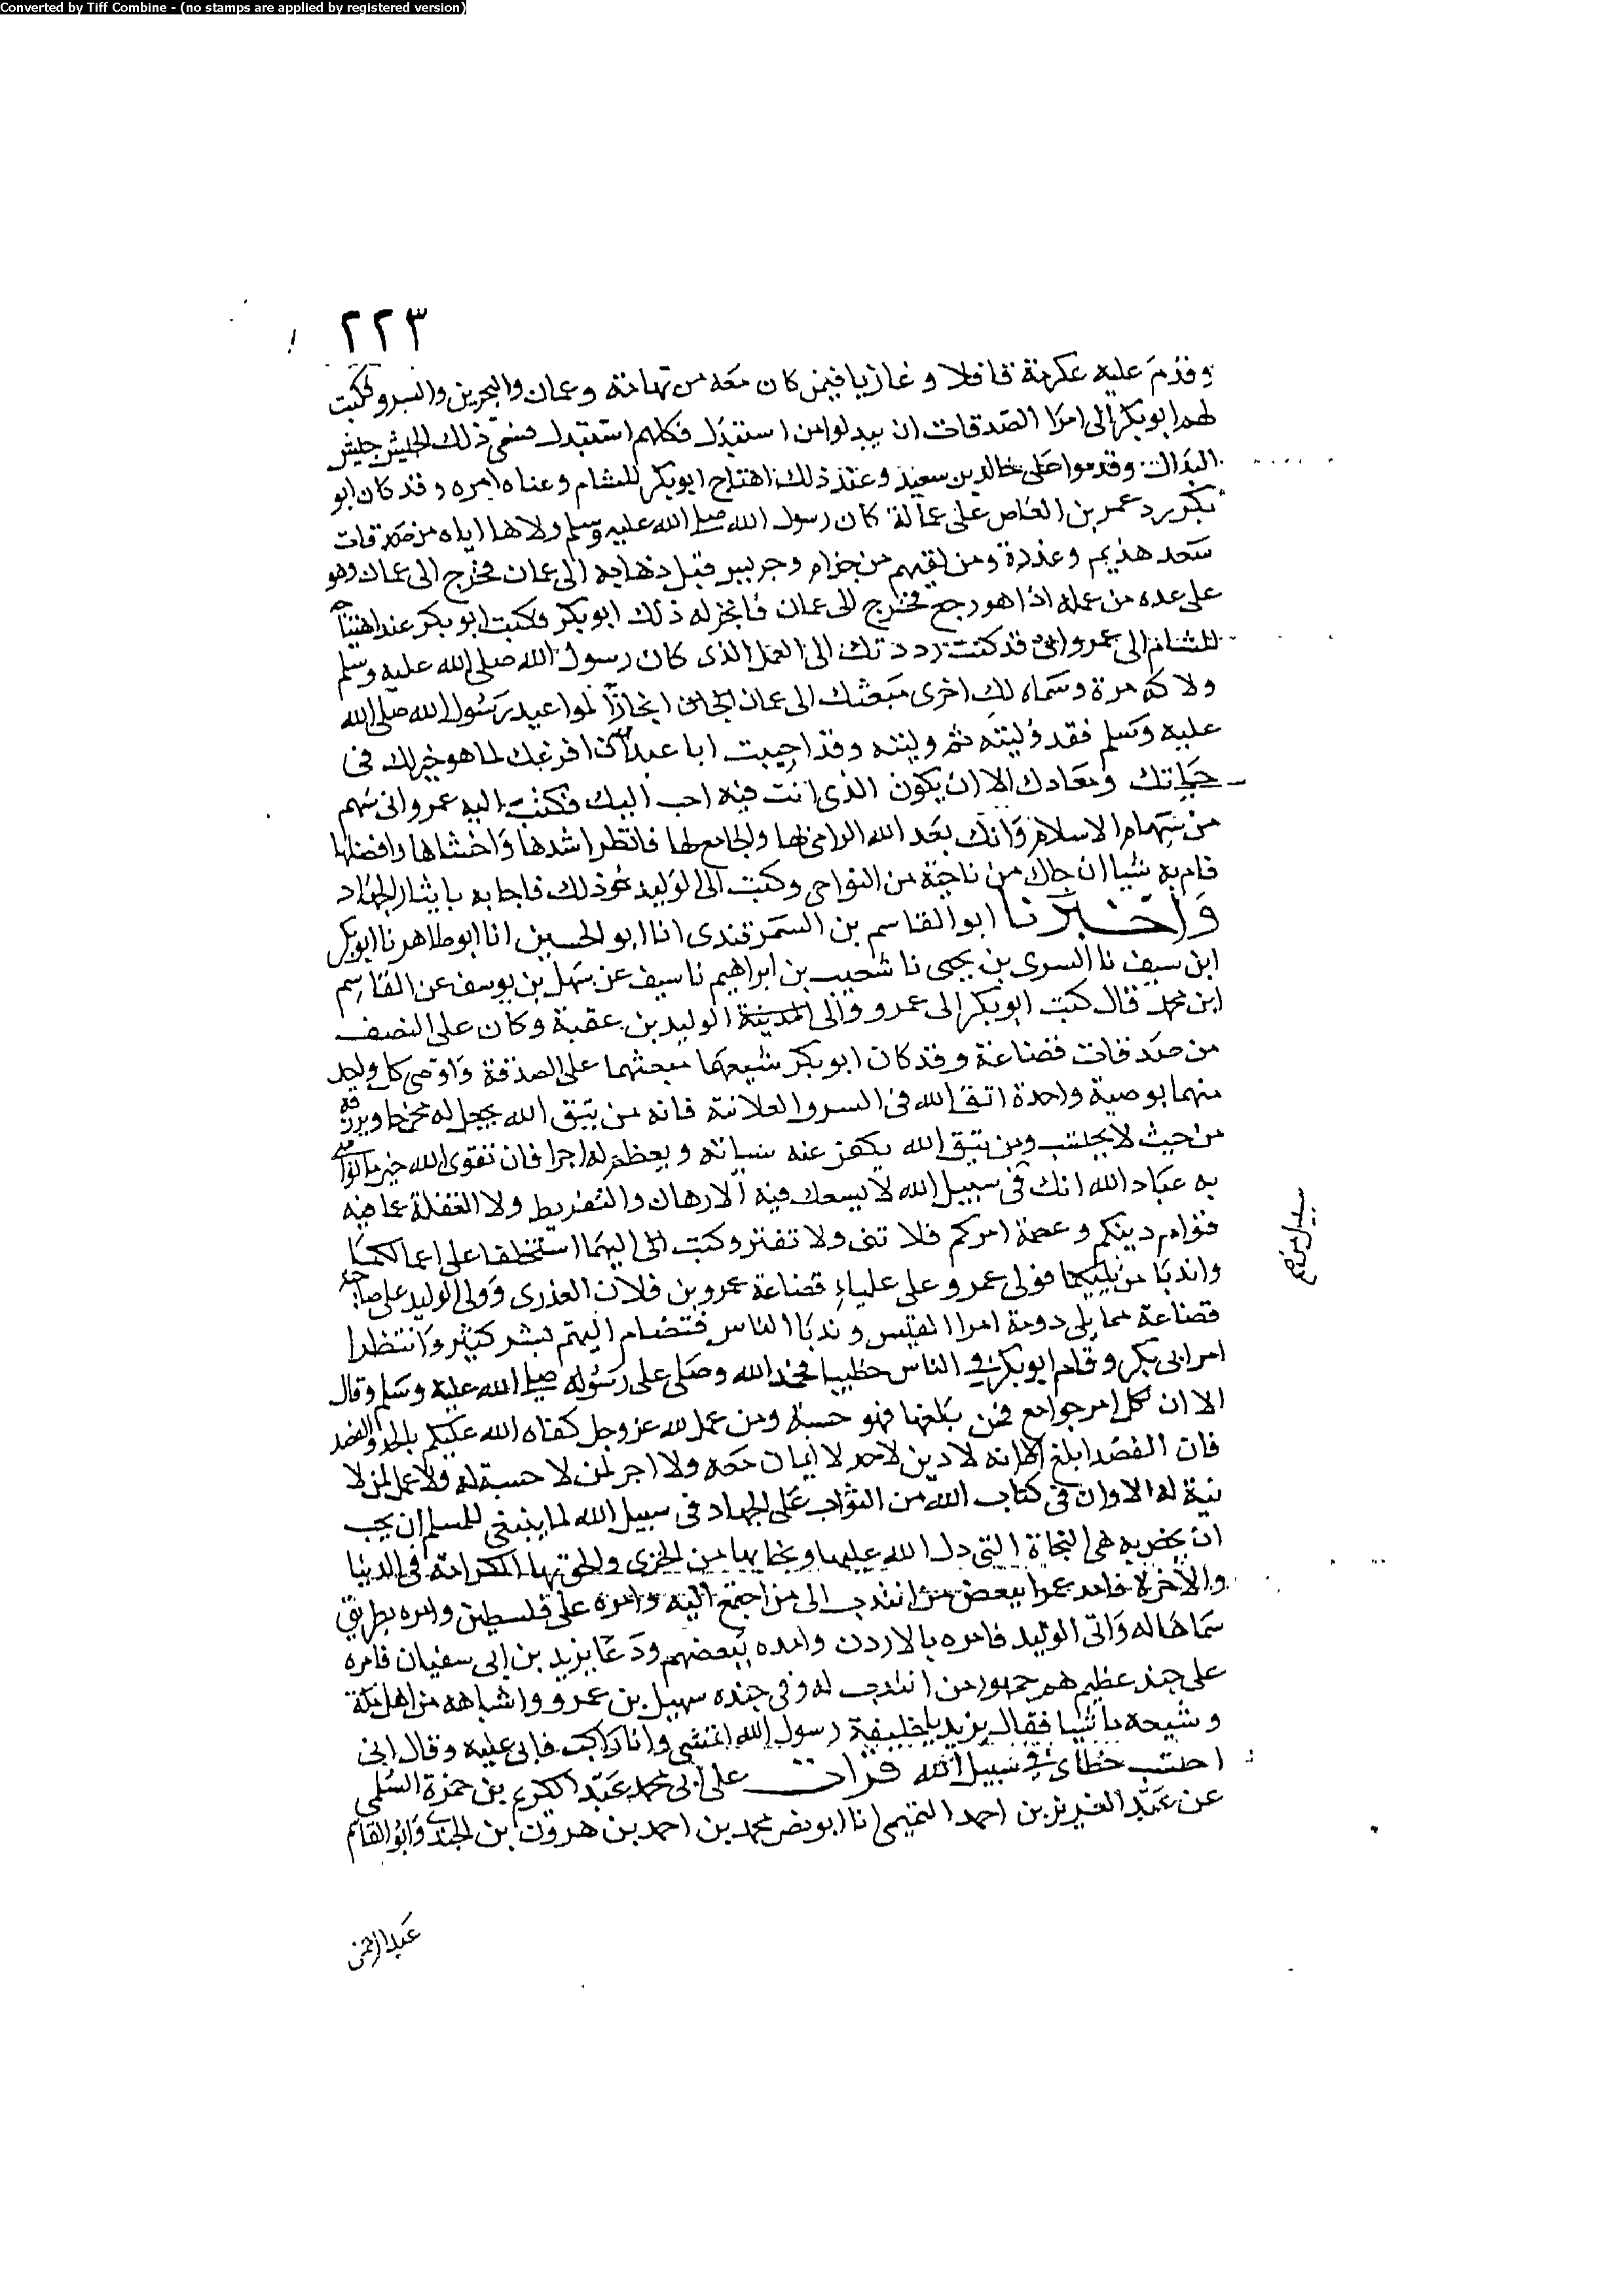 Converted by Tiff Combine - (no stamps are applied by registered version)
٢٢٣
وقدم عليه عكرمة قافلا وغازيا فيمن كان معه من تهامة وعمان والبحرين والسرو فكتب
لهم ابو بكر الى امرا الصدقات ان يبدلوا من استبدل فكلهم استبدل فسمى ذلك الجيش جيش
البدال وقدموا على خالد بن سعيد وعند ذلك اهتاج ابو بكر للشام وعناه امره وقد كان ابو
بكر رد عمر بن العاص على عمالة كان رسول الله صلى الله عليه وسلم ولاها اياه من صدقات
سعد هذيم وعذرة ومن لقيهم من جزام وجربير قبل ذهابه الى عمان فخرج الى عمان وهو
على عده من عمله اذا هو رجع فخرج الى عمان فانجز له ذلك ابو بكر فكتب ابو بكر عند اهتياجه
للشام الى عمرو انى قد كنت رددتك الى العمل الذى كان رسول الله صلى الله عليه وسلم
ولاكه مرة وسماه لك اخرى مبعثك الى عمان انجازا لمواعيد رسول الله صلى الله
عليه وسلم فقد وليته ثم وليته وقد احببت ابا عبدالله ان افرغك لما هو خير لك فى
حياتك ومعادك الا ان يكون الذى انت فيه احب اليك فكتب اليه عمرو انى سهم
من سهام الاسلام وانك بعد الله الرامى بها والجامع لها فانظر اشدها واخشاها وافضلها
فام به شيا ان جاك من ناحية من النواحى وكتب الى الوليد نحو ذلك فاجابه بايثار الجهاد
واخبرنا ابو القاسم بن السمرقندى انا ابو الحسين انا ابو طاهر نا ابو بكر
ابن سيف نا السرى بن يحيى نا شعيب بن ابراهيم نا سيف عن سهل بن يوسف عن القاسم
ابن محمد قال كتب ابو بكر الى عمرو والى المدينة الوليد بن عقبة وكان على النصف
من صدقات قضاعة وقد كان ابو بكر شيعهما مبعثهما على الصدقة واوصى كل واحد
منهما بوصية واحدة اتق الله فى السر والعلانة فانه من يتق الله يجعل له مخرجا ويرزقه
من حيث لا يحتسب ومن يتق الله يكفر عنه سياته ويعظم له اجرا فان تقوى الله خير ما تواصى
به عباد الله انك فى سبيل الله لا يسعك فيه الارهان والتفريط ولا الغفلة عما فيه
قوام دينكم وعصمة امركم فلا تنى ولا تفتر وكتب الى اليهما استخلفا على اعمالكما
واندبا من يليكما فولى عمرو على علياء قضاعة عمرو بن فلان العذرى وولى الوليد على ضاحية
قضاعة مما يلى دومة امرا القيس وندبا الناس فتتام اليهم بشر كثير وانتظرا
امر ابى بكر وقام ابو بكر فى الناس خطيبا فحمد الله وصلى على رسوله صلى الله عليه وسلم وقال
الا ان لكل امر جوامع فمن بلغها فهو حسبه ومن عمل لله عز وجل كفاه الله عليكم بالجد والقصد
فان القصد ابلغ الا انه لا دين لاحد لا ايمان معه ولا اجر لمن لا حسبة له ولا عمل لمن لا
نية له الا وان فى كتاب الله من الثواب على الجهاد فى سبيل الله لما ينبغى للمسلم ان يحب
ان يخص به هى النجاة التى دل الله عليها ونجا بها من الخزى والحق بها الكرامة فى الدنيا
والاخرة فامد عمرا ببعض من انتدب الى من اجتمع اليه وامره على فلسطين وامره بطريق
سماها له واتى الوليد فامره بالاردن وامده ببعضهم ودعا يزيد بن ابى سفيان فامره
على جند عظيم هم جمهور من انتدب له وفى جنده سهيل بن عمرو واشباهه من اهل مكة
وشيعه ماشيا فقال يزيد يا خليفة رسول الله اتمشى وانا راكب فابى عليه وقال انى
احتسب خطاى فى سبيل الله قرات على ابى محمد عبد الكريم بن حمزة السلمى
عن عبد العزيز بن احمد التميمى انا ابو نصر محمد بن احمد بن هرون بن الجندى وابو القاسم
عبد الرحمن